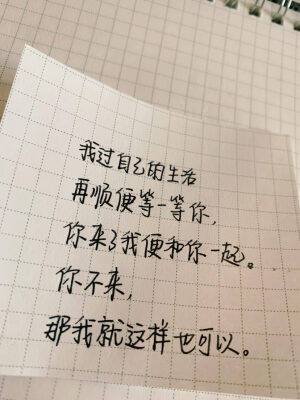 我过自己的生活
再顺便等一等你,
你来了我便和你一起。
你不来,
那我就这样也可以。